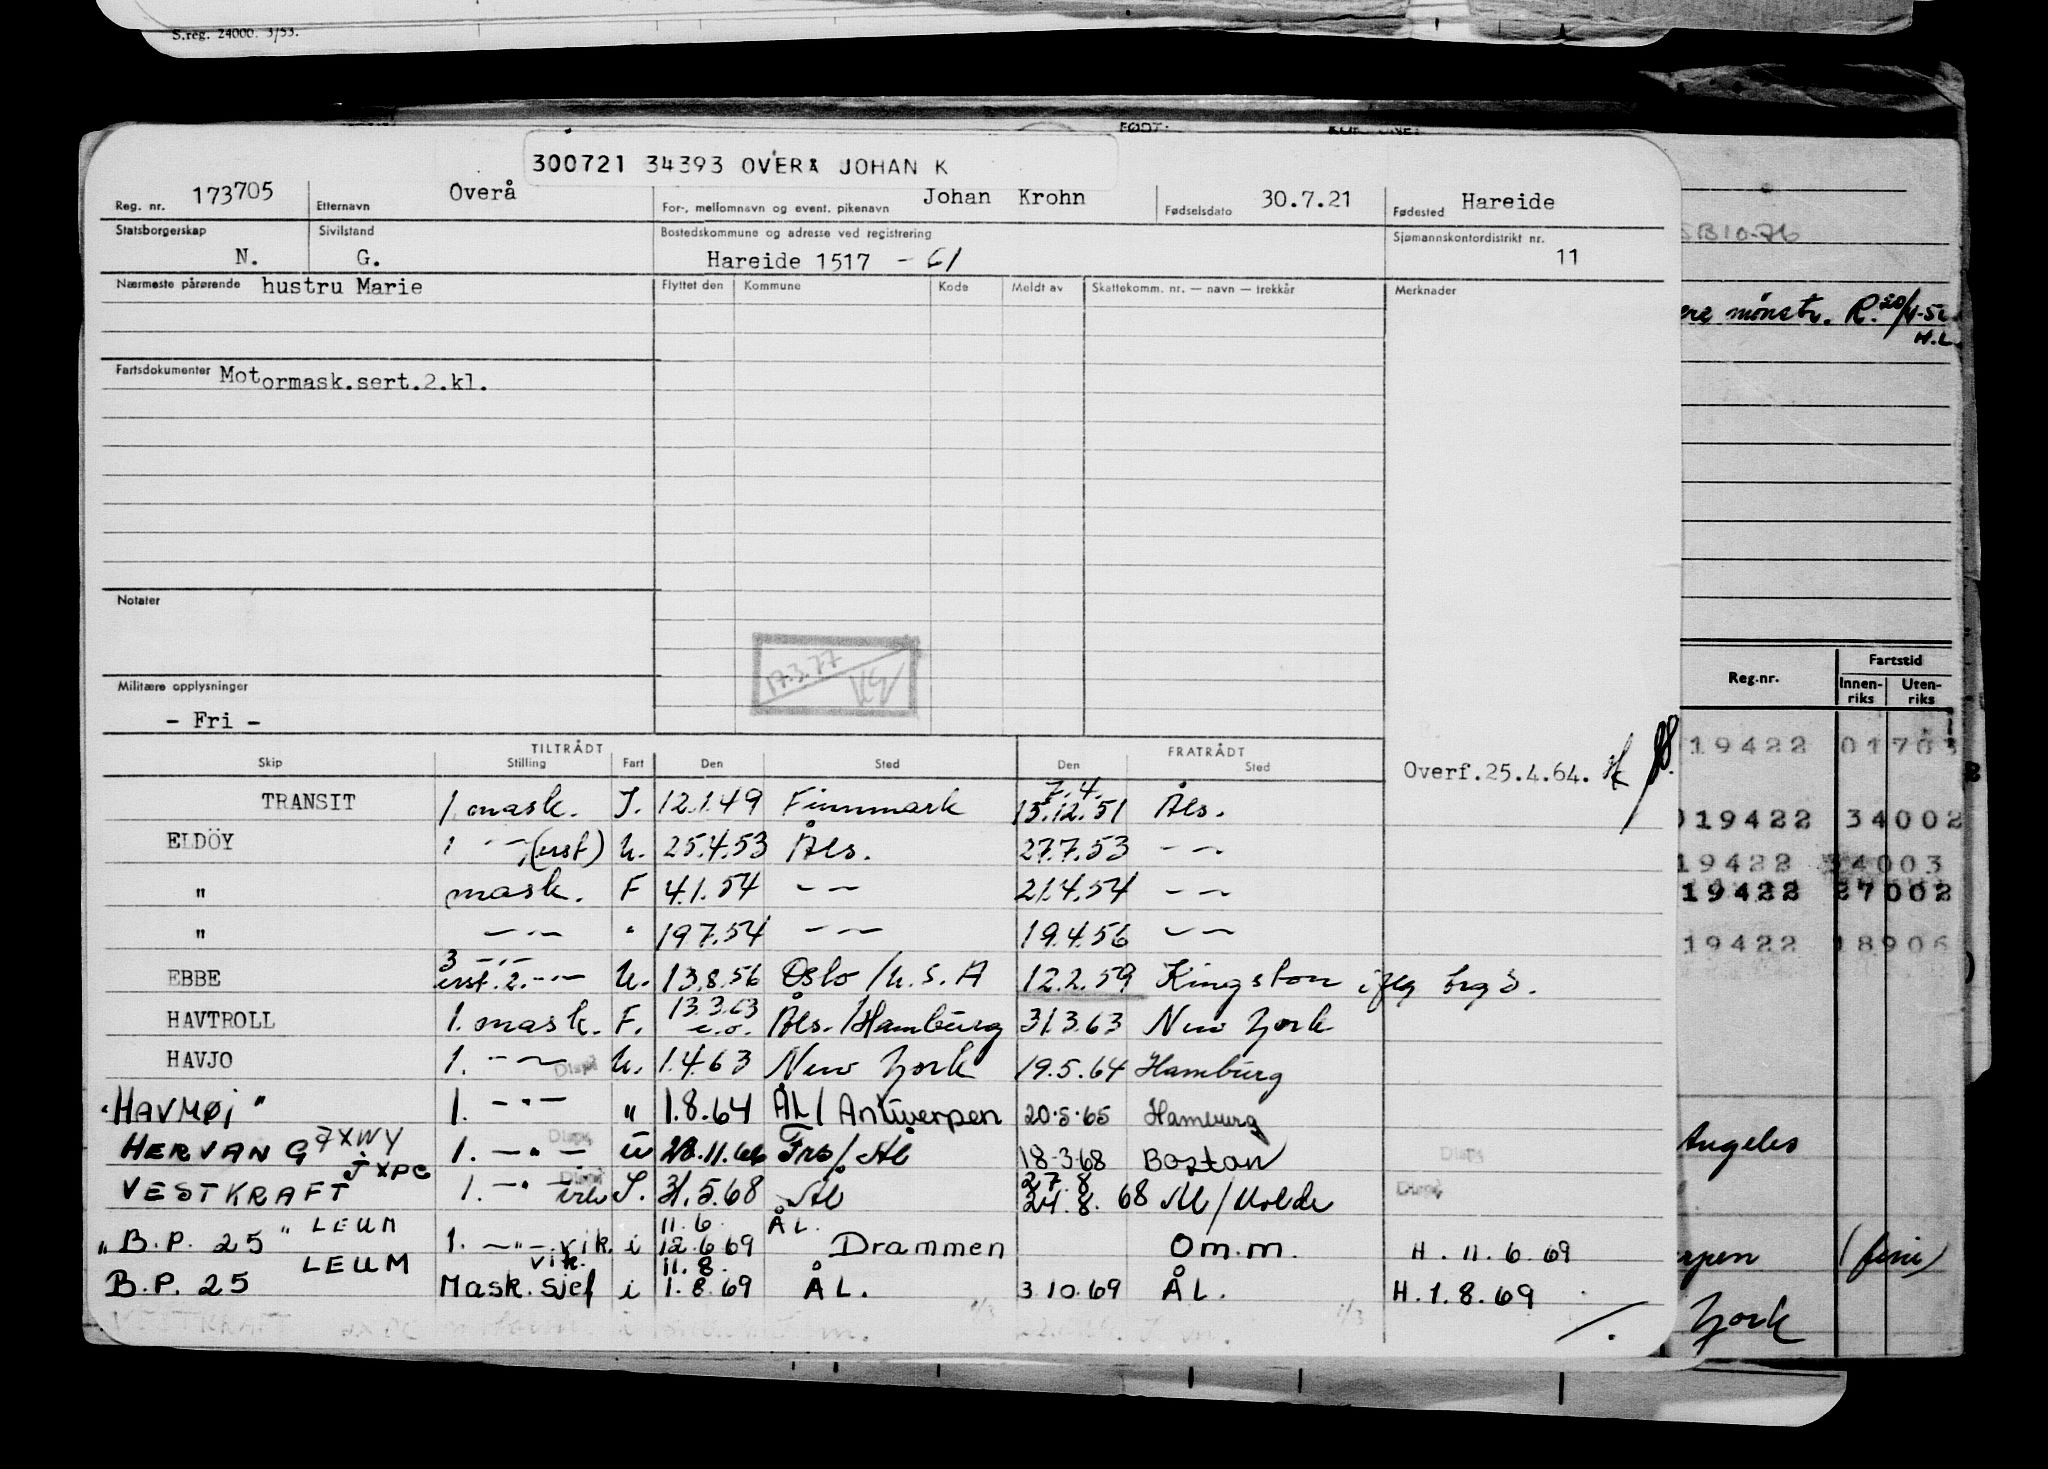 S.reg. 24000. 3/53.
FØDT:
300721 34393 OVERÅ JOHAN K
Reg. nr. 173705 Etternavn Overå For-, mellomnavn og event. pikenavn Johan Krohn Fødselsdato 30.7.21 Fødested Hareide
Statsborgerskap N. Sivilstand G. Bostedskommune og adresse ved registrering Hareide 1517 - 61 Sjømannskontordistrikt nr. 11
SB10-76
Nærmeste pårørende hustru Marie Flyttet den Kommune Kode Meldt av Skattekomm. nr. — navn — trekkår Merknader
ere mønstr. R. 20/4-5
H.L.
Fartsdokumenter Motormask.sert.2.kl.
Notater
17.3.77
Militære opplysninger
- Fri -
Reg.nr. Fartstid
Innen-riks Uten-riks
TILTRÅDT FRATRÅDT
Skip Stilling Fart Den Sted Den Sted
19422 01703
Overf.25.4.64.
TRANSIT 1 mask. I. 12.1.49 Finnmark 7.4. 15.12.51 Åls.
019422 34002
ELDÖY 1 -"- (asst) U. 25.4.53 Åls. 27.7.53 -"-
19422 34003
" mask. F 4.1.54 -"- 21.4.54 -"-
19422 27002
" -"- " 19.7.54 -"- 19.4.56 -"-
19422 18906
EBBE 3 -"- asst. 2. -"- U. 13.8.56 Oslo/U.S.A 12.2.59 Kingston
HAVTROLL 1. mask. F. 13.3.63 Åls./Hamburg 31.3.63 New York
HAVJO 1. -"- U. 1.4.63 New York 19.5.64 Hamburg
Disp
"HAVMØI" 1. -"- " 1.8.64 ÅL/Antwerpen 20.5.65 Hamburg
HERVANG JXWY 1. -"- Disp U 28.11.66 Frb/Ål 18-3.68 Boston Disp
Angeles
VESTKRAFT JXPC 1. -"- Disp I. 31.5.68 Ål 27.8 24.8.68 M/Molde Disp
"B.P. 25" LEUM 1. -"- vik. i 11.6 12.6.69 ÅL. Drammen Om.m. H. 11.6.69
B.P. 25 LEUM vik. Mask.sjef i 11.8. 1.8.69 ÅL. 3.10.69 ÅL. H.1.8.69
York
VESTKRAFT JXPC